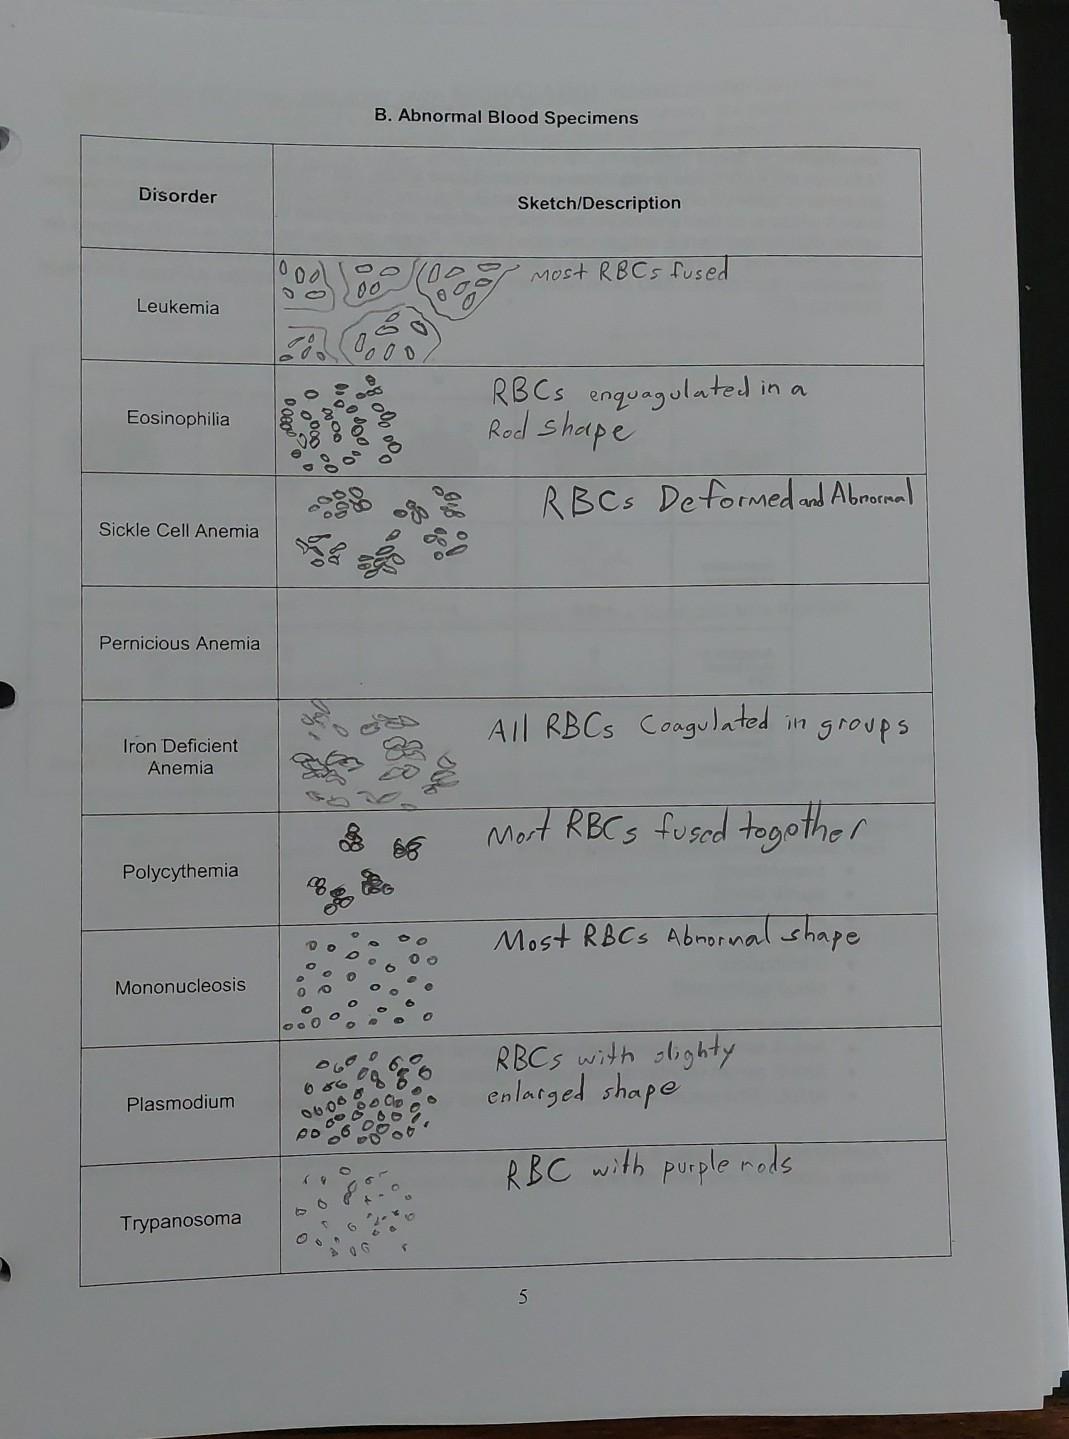 B. Abnormal Blood Specimens
Disorder
Sketch/Description
Leukemia
Most RBCs fused
Eosinophilia
RBCs enquagulated in a
Rod shape
Sickle Cell Anemia
RBCs Deformed and Abnormal
Pernicious Anemia
Iron Deficient
Anemia
All RBCs Coagulated in groups
Polycythemia
Most RBCs fused together
Mononucleosis
Most RBCs Abnormal shape
Plasmodium
RBCs with slighty
enlarged shape
Trypanosoma
RBC with purple rods
5